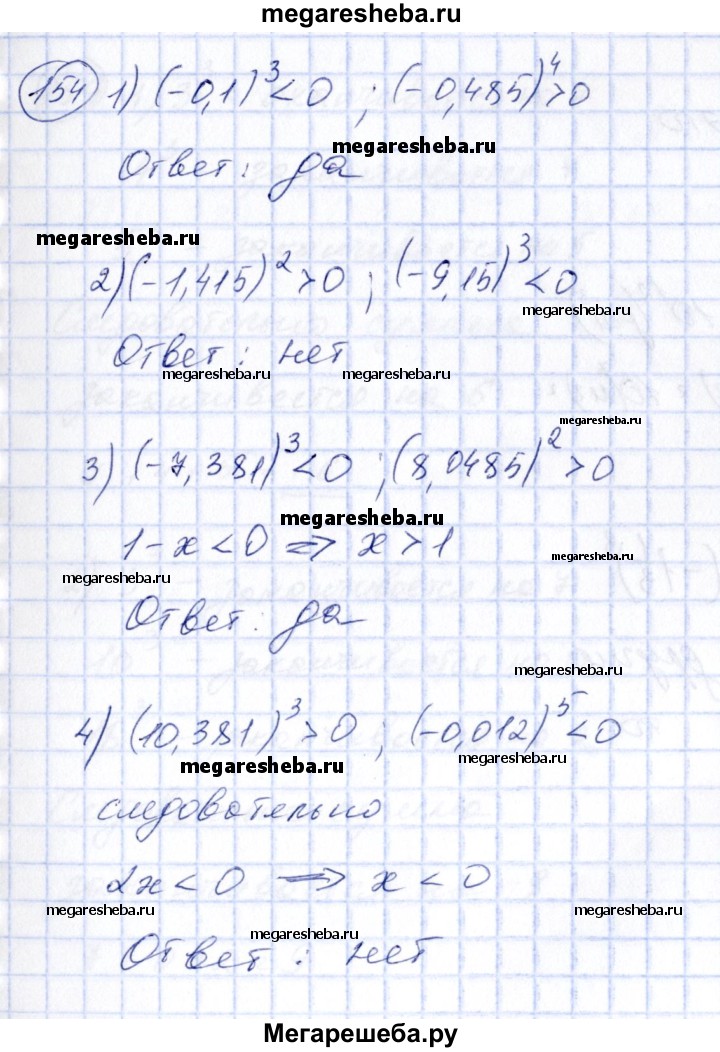 megaresheba.ru
154 1) (-0,1)³<0 ; (-0,485)⁴>0
megaresheba.ru
Ответ: да
megaresheba.ru
2) (-1,415)²>0 ; (-9,15)³<0
megaresheba.ru
Ответ: нет
megaresheba.ru megaresheba.ru
megaresheba.ru
3) (-7,381)³<0 ; (8,0485)²>0
megaresheba.ru
1-x<0 ⇒ x>1
megaresheba.ru
megaresheba.ru
Ответ: да
megaresheba.ru
4) (10,381)³>0 ; (-0,012)⁵<0
megaresheba.ru megaresheba.ru
следовательно
2x<0 ⇒ x<0
megaresheba.ru megaresheba.ru
megaresheba.ru
Ответ: нет
Мегарешеба.ру